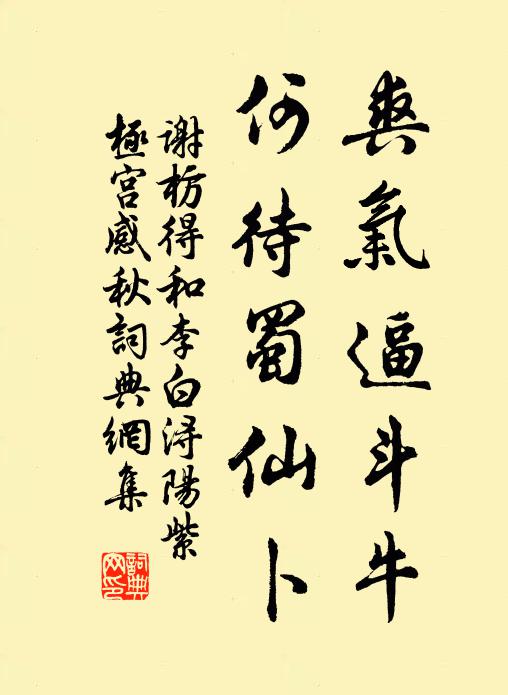 爽氣逼斗牛
何待蜀仙卜
谢枋得和李白浔陽紫
極宫感秋詞典網集
詞典網印